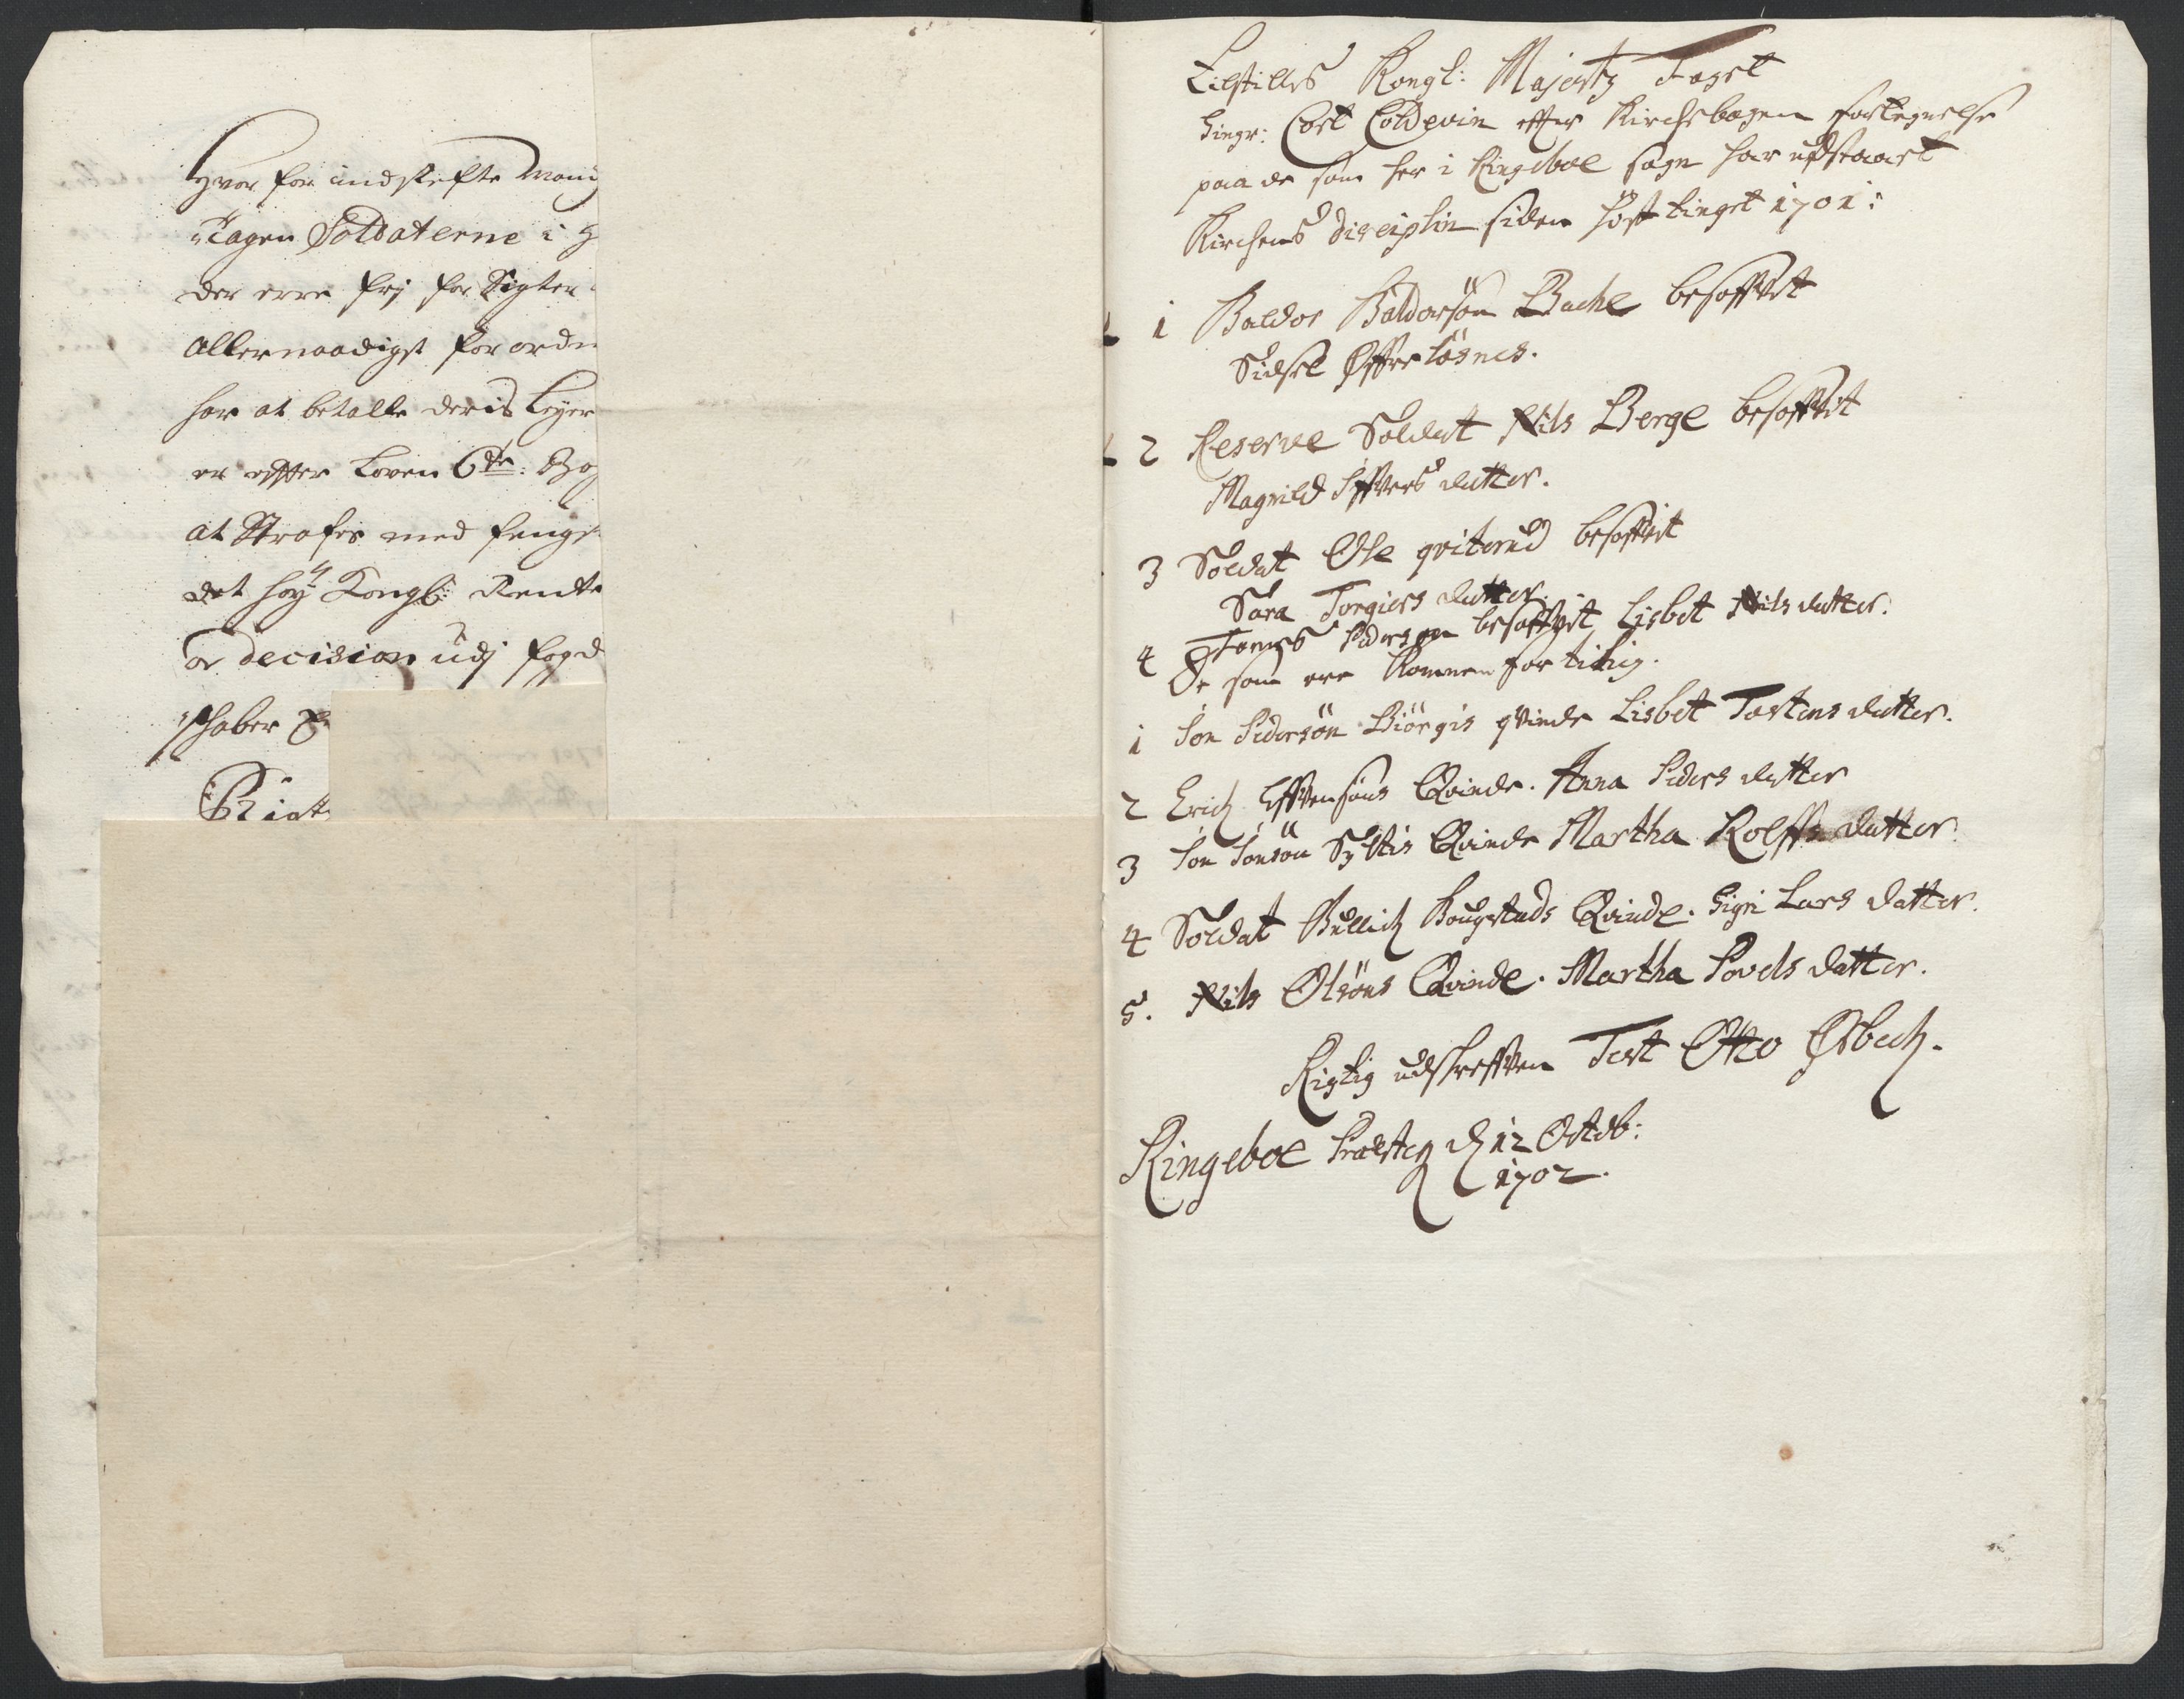 Hvor for indstefte Mand
tagen Soldaterne i H
der erre frj for Sigter
Allernaadigst forordn
har at betalle deris Leyer
er effter Loven 6te: Bog
at Straffes med fengs
det høy Kongl: Rendte
or decision udj fogd
schaber
Rigt
Tilstilles Kongl: Majestz Fogit
Singr: Cort Coldevin effter Kirchebogen fortegnelse
paa de som her i Ringeboe sogn har udstaaet
Kirchens disciplin siden høste tinget 1701:
1 Baldor Baldorsøn Bache besoffvet
Sidsel Iffversdatter.
2 Reserve Soldat Nils Berge besoffvet
Magnild Iffvers datter.
3 Soldat Ole qviterud besoffvet
Sara Torgiers datter.
4 Tomes Pedersøn besoffvet Lisbet Nils datter.
De som ere Kommen for tilig.
1 Jon Pedersøn Biørgis qvinde Lisbet Tostens datter.
2 Erich Effvensøns Qvinde. Anna Peders datter
3 Jon Jonsøn Syltis Qvinde Martha Rolffs datter
4 Soldat Gullich Bougstads Qvinde. Sigri Lars datter.
5. Nils Olsøns Qvinde. Martha Povels datter.
Rigtig udschreffven Test Otto Øsbech.
Ringeboe Præsteg d 12 Octob:
1702.